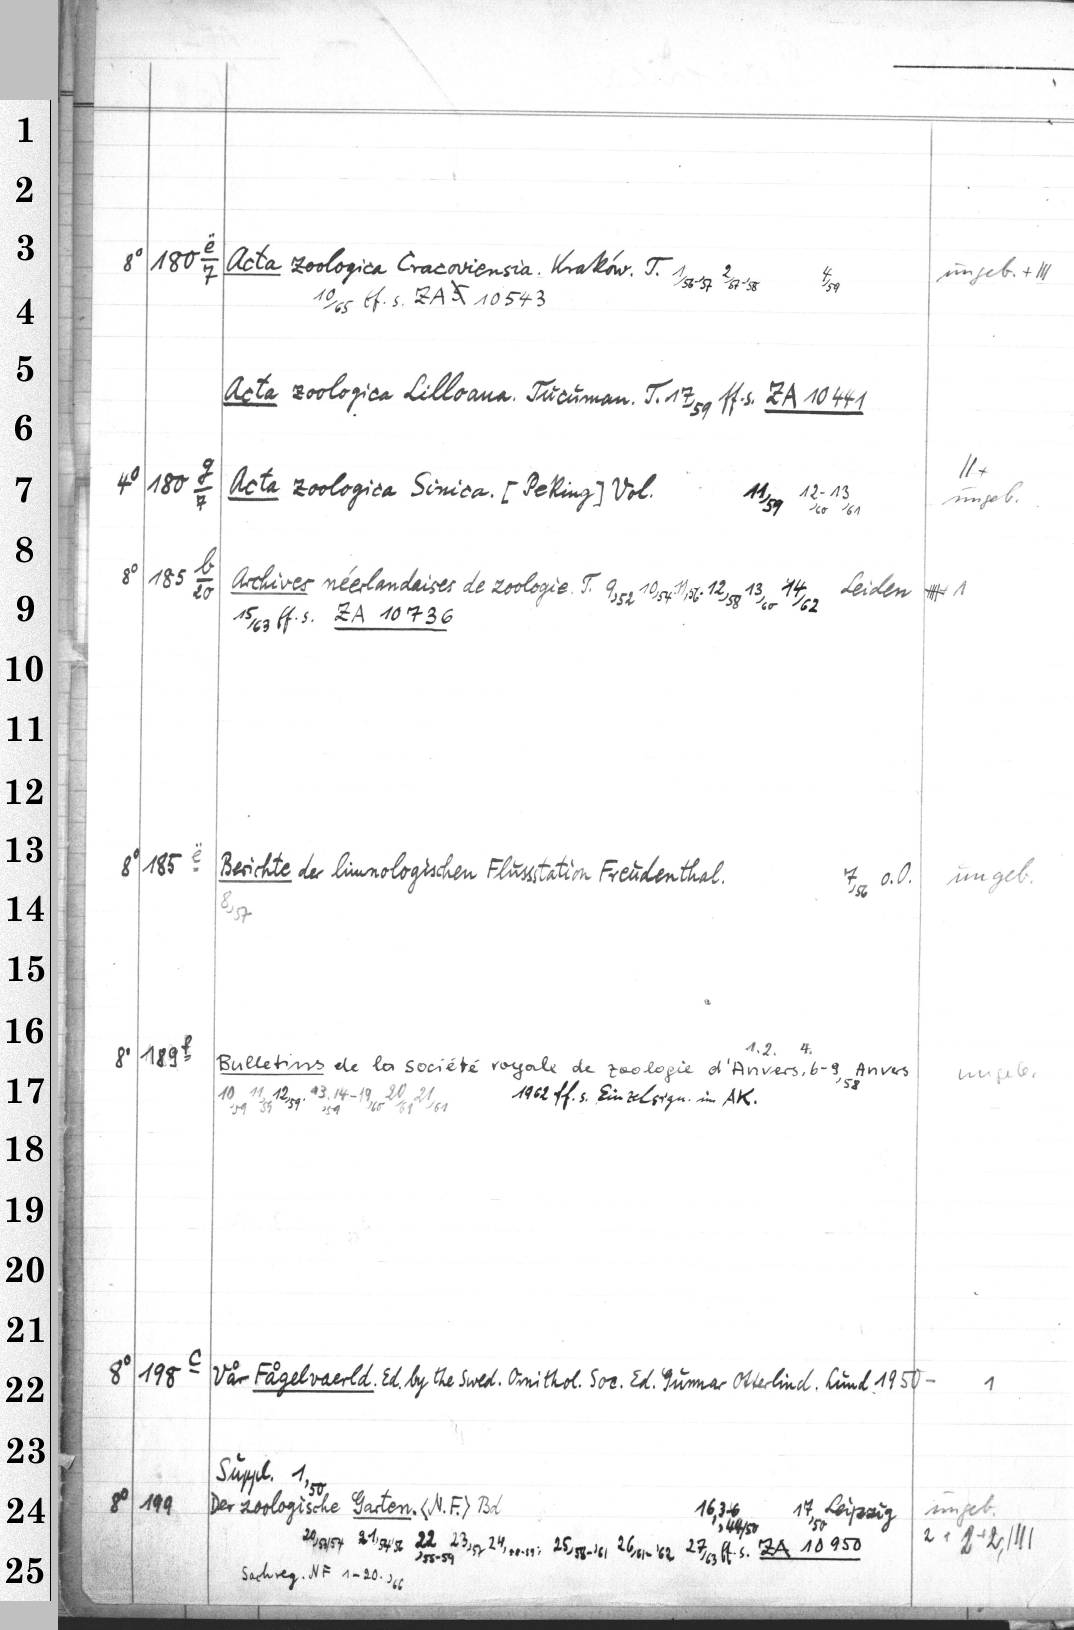 1
2
3
8° 180 ë/7 Acta zoologica Cracoviensia. Kraków. T. 1/56-57 2/57-58 4/59 ungeb. + III
10/65 ff. s. ZA 10543
4
5
Acta zoologica Lilloana. Tucuman. T. 17,59 ff. s. ZA 10441
6
II +
7
4° 180 g/7 Acta zoologica Sinica. [Peking] Vol. 11,59 12-13 ,60 ,61 ungeb.
8
8° 185 b/20 Archives néerlandaises de zoologie. T. 9,52 10,54 11,56 12,58 13/60 14/62 Leiden 1
9
15,63 ff. s. ZA 10736
10
11
12
13
8° 185 ë Berichte der limnologischen Flussstation Freudenthal. 7,56 o.O. ungeb.
14
8,57
15
16
1.2. 4.
8° 189 f Bulletins de la société royale de zoologie d'Anvers. 6-9,58 Anvers ungeb.
17
10,59 11,59 12,59. 13,14-19,60 20/61 21,61 1962 ff. s. Einzelsign. im AK.
18
19
20
21
22
8° 198 c Vår Fågelvaerld. Ed. by the Swed. Ornithol. Soc. Ed. Gunnar Otterlind. Lund 1950- 1
23
Suppl. 1,50
24
8° 199 Der zoologische Garten. <N.F.> Bd 16,3-6 ,49/50 17,50 Leipzig ungeb.
20,53/54 21,54/56 22,55-59 23,57 24, 25,58-,61 26,61-'62 27,63 ff. s. ZA 10950 2 + 2+2,/III
25
Sachreg. NF 1-20.,66